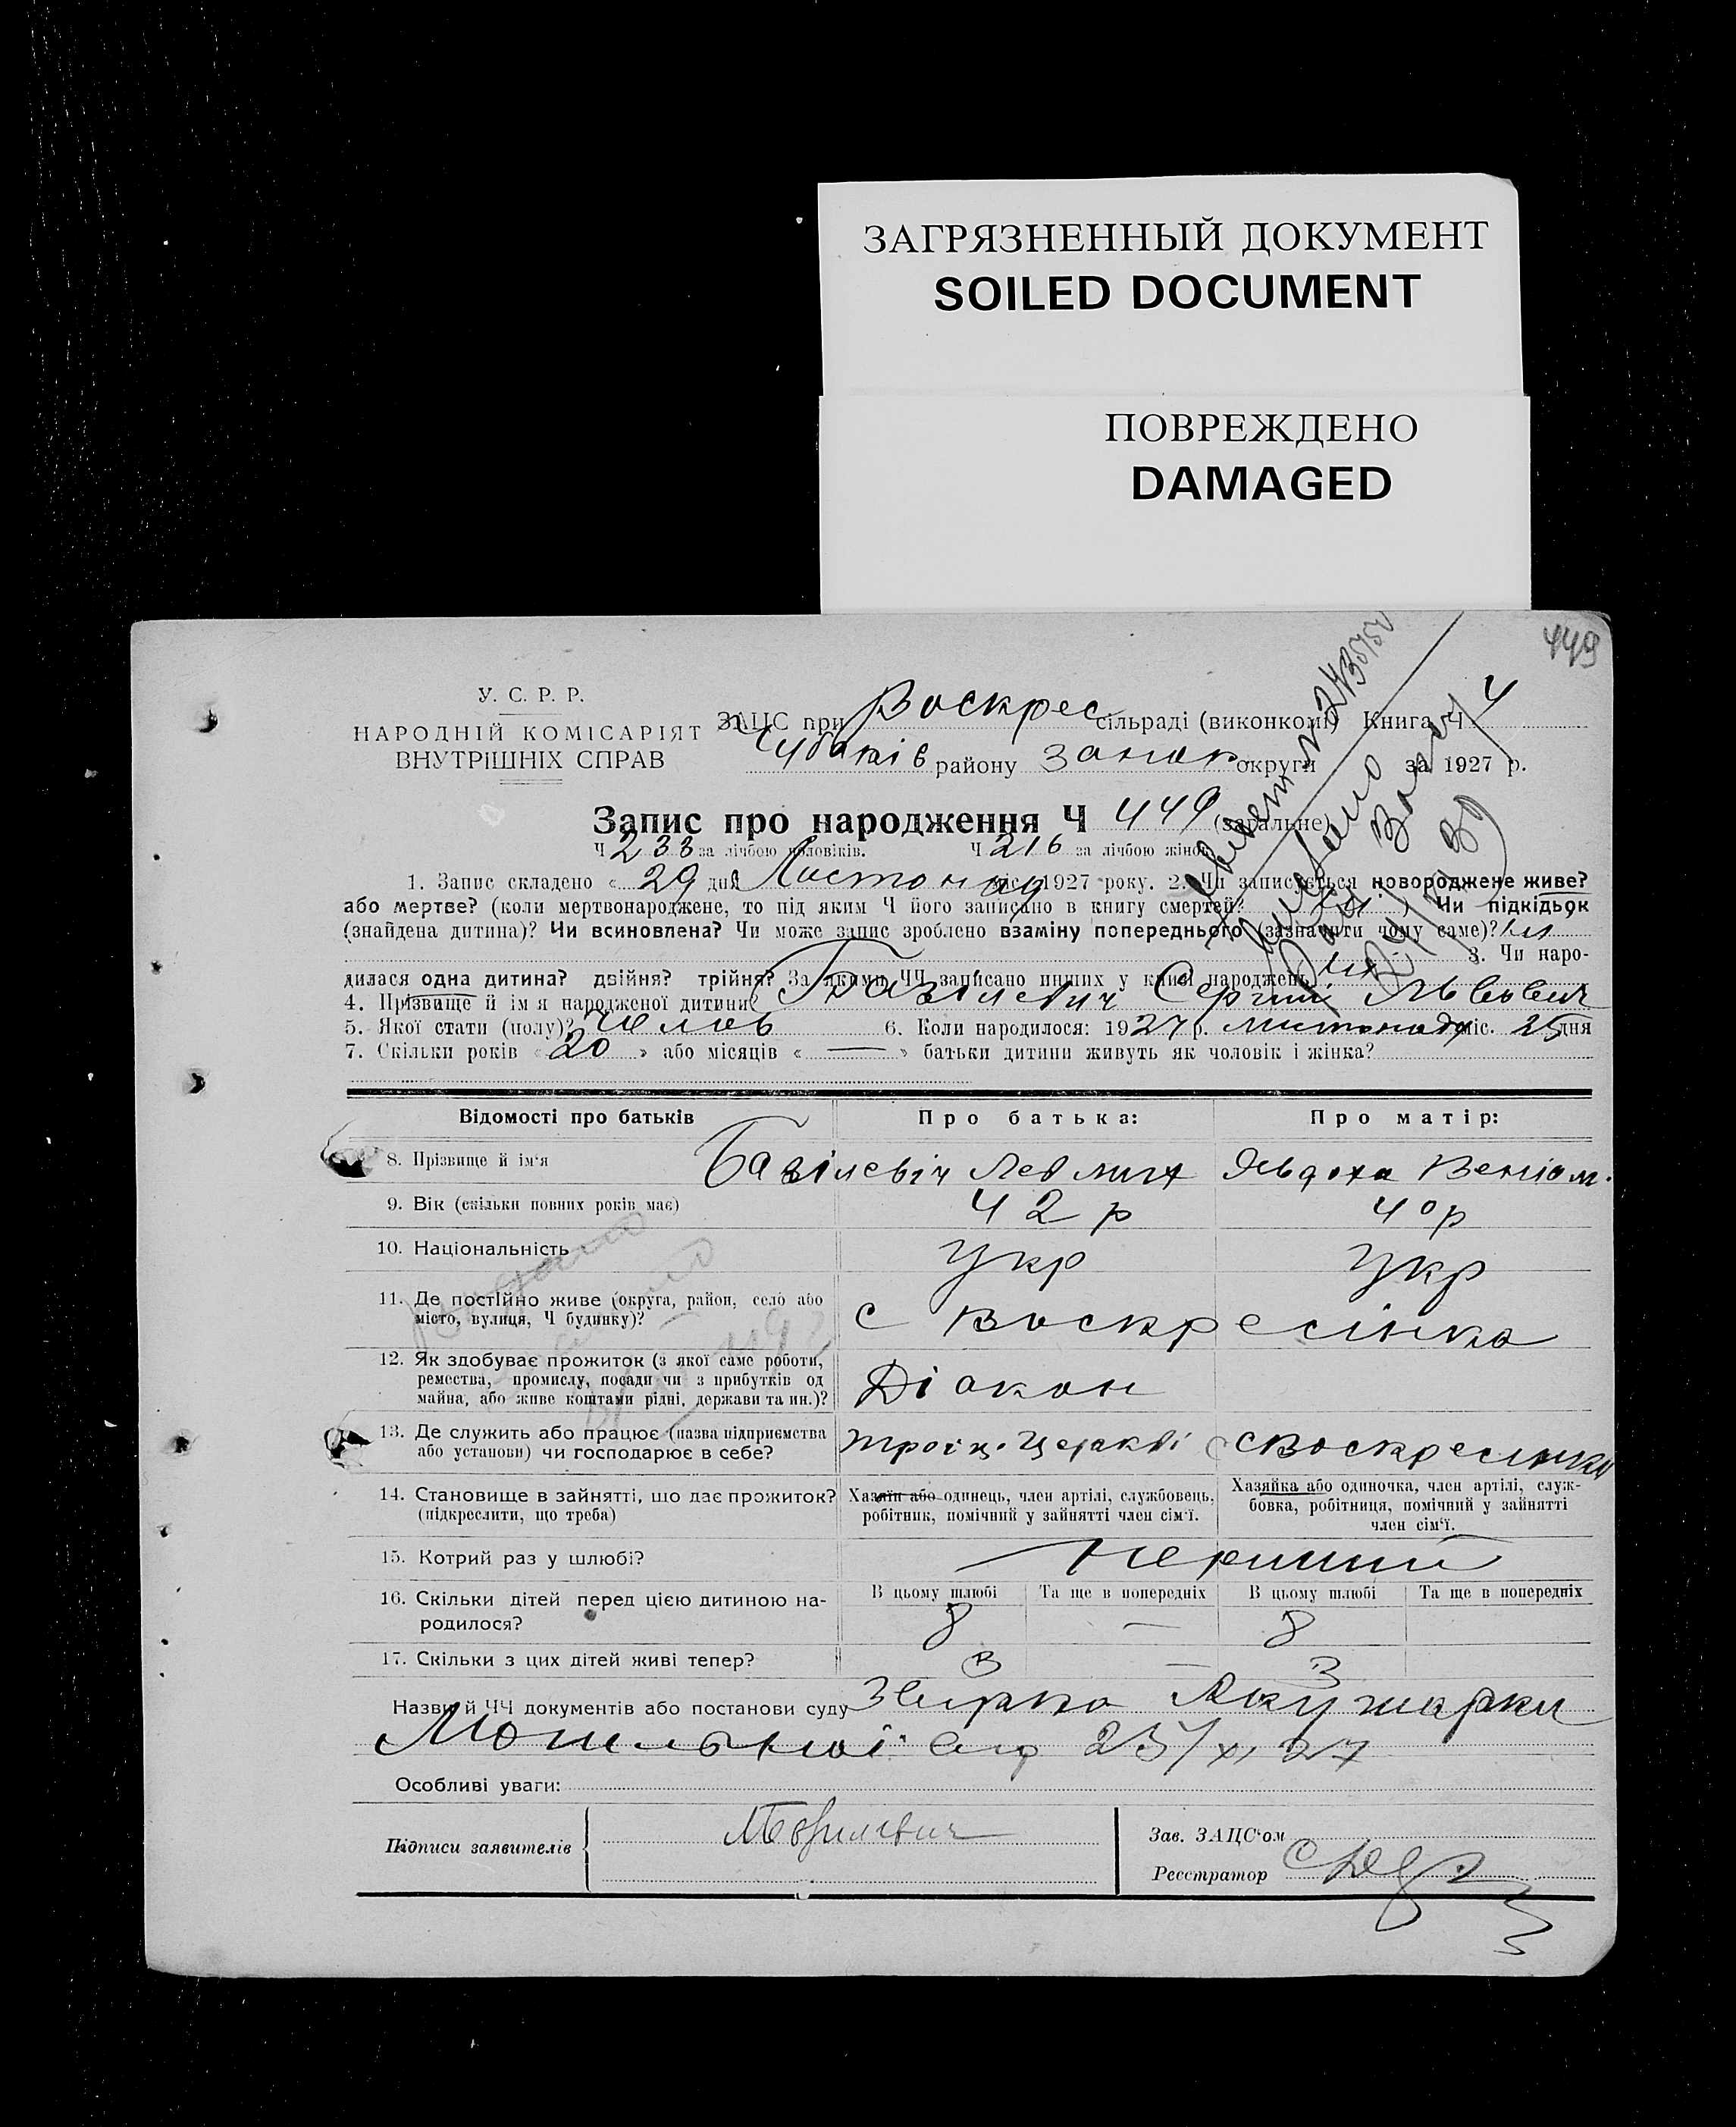 ЗАГРЯЗНЕННЫЙ ДОКУМЕНТ
SOILED DOCUMENT
ПОВРЕЖДЕНО
DAMAGED
449
У. С. Р. Р.
НАРОДНІЙ КОМІСАРІЯТ
ВНУТРІШНІХ СПРАВ
ЗАЦС при Воскрес сільраді (виконкомі) Книга Ч 4
району округи за 1927 р.
Запис про народження Ч 449 (загальне)
Ч 233 за лічбою чоловіків. Ч 216 за лічбою жінок
1. Запис складено « 29 дня Листопад міс. 1927 року. 2. Чи записується новороджене живе?
або мертве? (коли мертвонароджене, то під яким Ч його записано в книгу смертей? ) Чи підкідьок
(знайдена дитина)? Чи всиновлена? Чи може запис зроблено взаміну попереднього (зазначити чому саме)?
3. Чи наро-
дилася одна дитина? двійня? трійня? За якими ЧЧ записано инших у книзі народжень
4. Прізвище й ім'я народженої дитини? Базілевич Сергий Львович
5. Якої статі (полу)? 6. Коли народилося: 1927 р. листопада міс. 25 дня
7. Скільки років « 20 » або місяців « — » батьки дитини живуть як чоловік і жінка?
Відомості про батьків Про батька: Про матір:
8. Прізвище й ім'я Базілевіч Лев Явдоха Веніам.
9. Вік (скільки повних років має) 42 р 40 р
10. Національність Укр Укр
11. Де постійно живе (округа, район, село або
місто, вулиця, Ч будинку)? с Воскресінка
12. Як здобуває прожиток (з якої саме роботи,
ремества, промислу, посади чи з прибутків од
майна, або живе коштами рідні, держави та ин.)? Діакон
13. Де служить або працює (назва підприємства
або установи) чи господарює в себе? Троіц. Церкві с Воскресінки
14. Становище в зайнятті, що дає прожиток?
(підкреслити, що треба)
Хазяїн або одинець, член артілі, службовець,
робітник, помічний у зайнятті член сім'ї.
Хазяйка або одиночка, член артілі, служ-
бовка, робітниця, помічний у зайнятті
член сім'ї.
15. Котрий раз у шлюбі? Перший
16. Скільки дітей перед цією дитиною на-
родилося?
В цьому шлюбі Та ще в попередніх В цьому шлюбі Та ще в попередніх
8 — 8
17. Скільки з цих дітей живі тепер? 3 — 3
Назви й ЧЧ документів або постанови суду Акушерки
від 25/XI 27
Особливі уваги:
Підписи заявителів
Зав. ЗАЦС'ом
Реєстратор